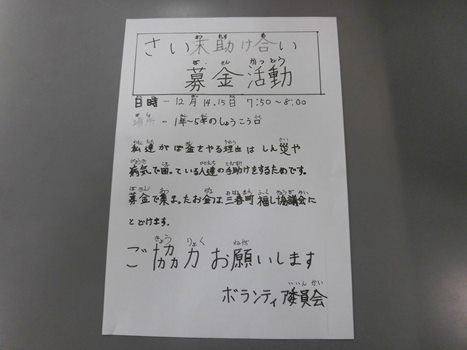 さい末助け合い
募金活動
日時-12月14.15日 7:50~8:00
場所-1年~5年のしょうこう口
私達がぼ金をやる理由はしん災や
病気で困っている人達の手助けをするためです。
募金で集まったお金は三春町福し協議会に
とどけます。
ご協力お願いします
ボランティア委員会